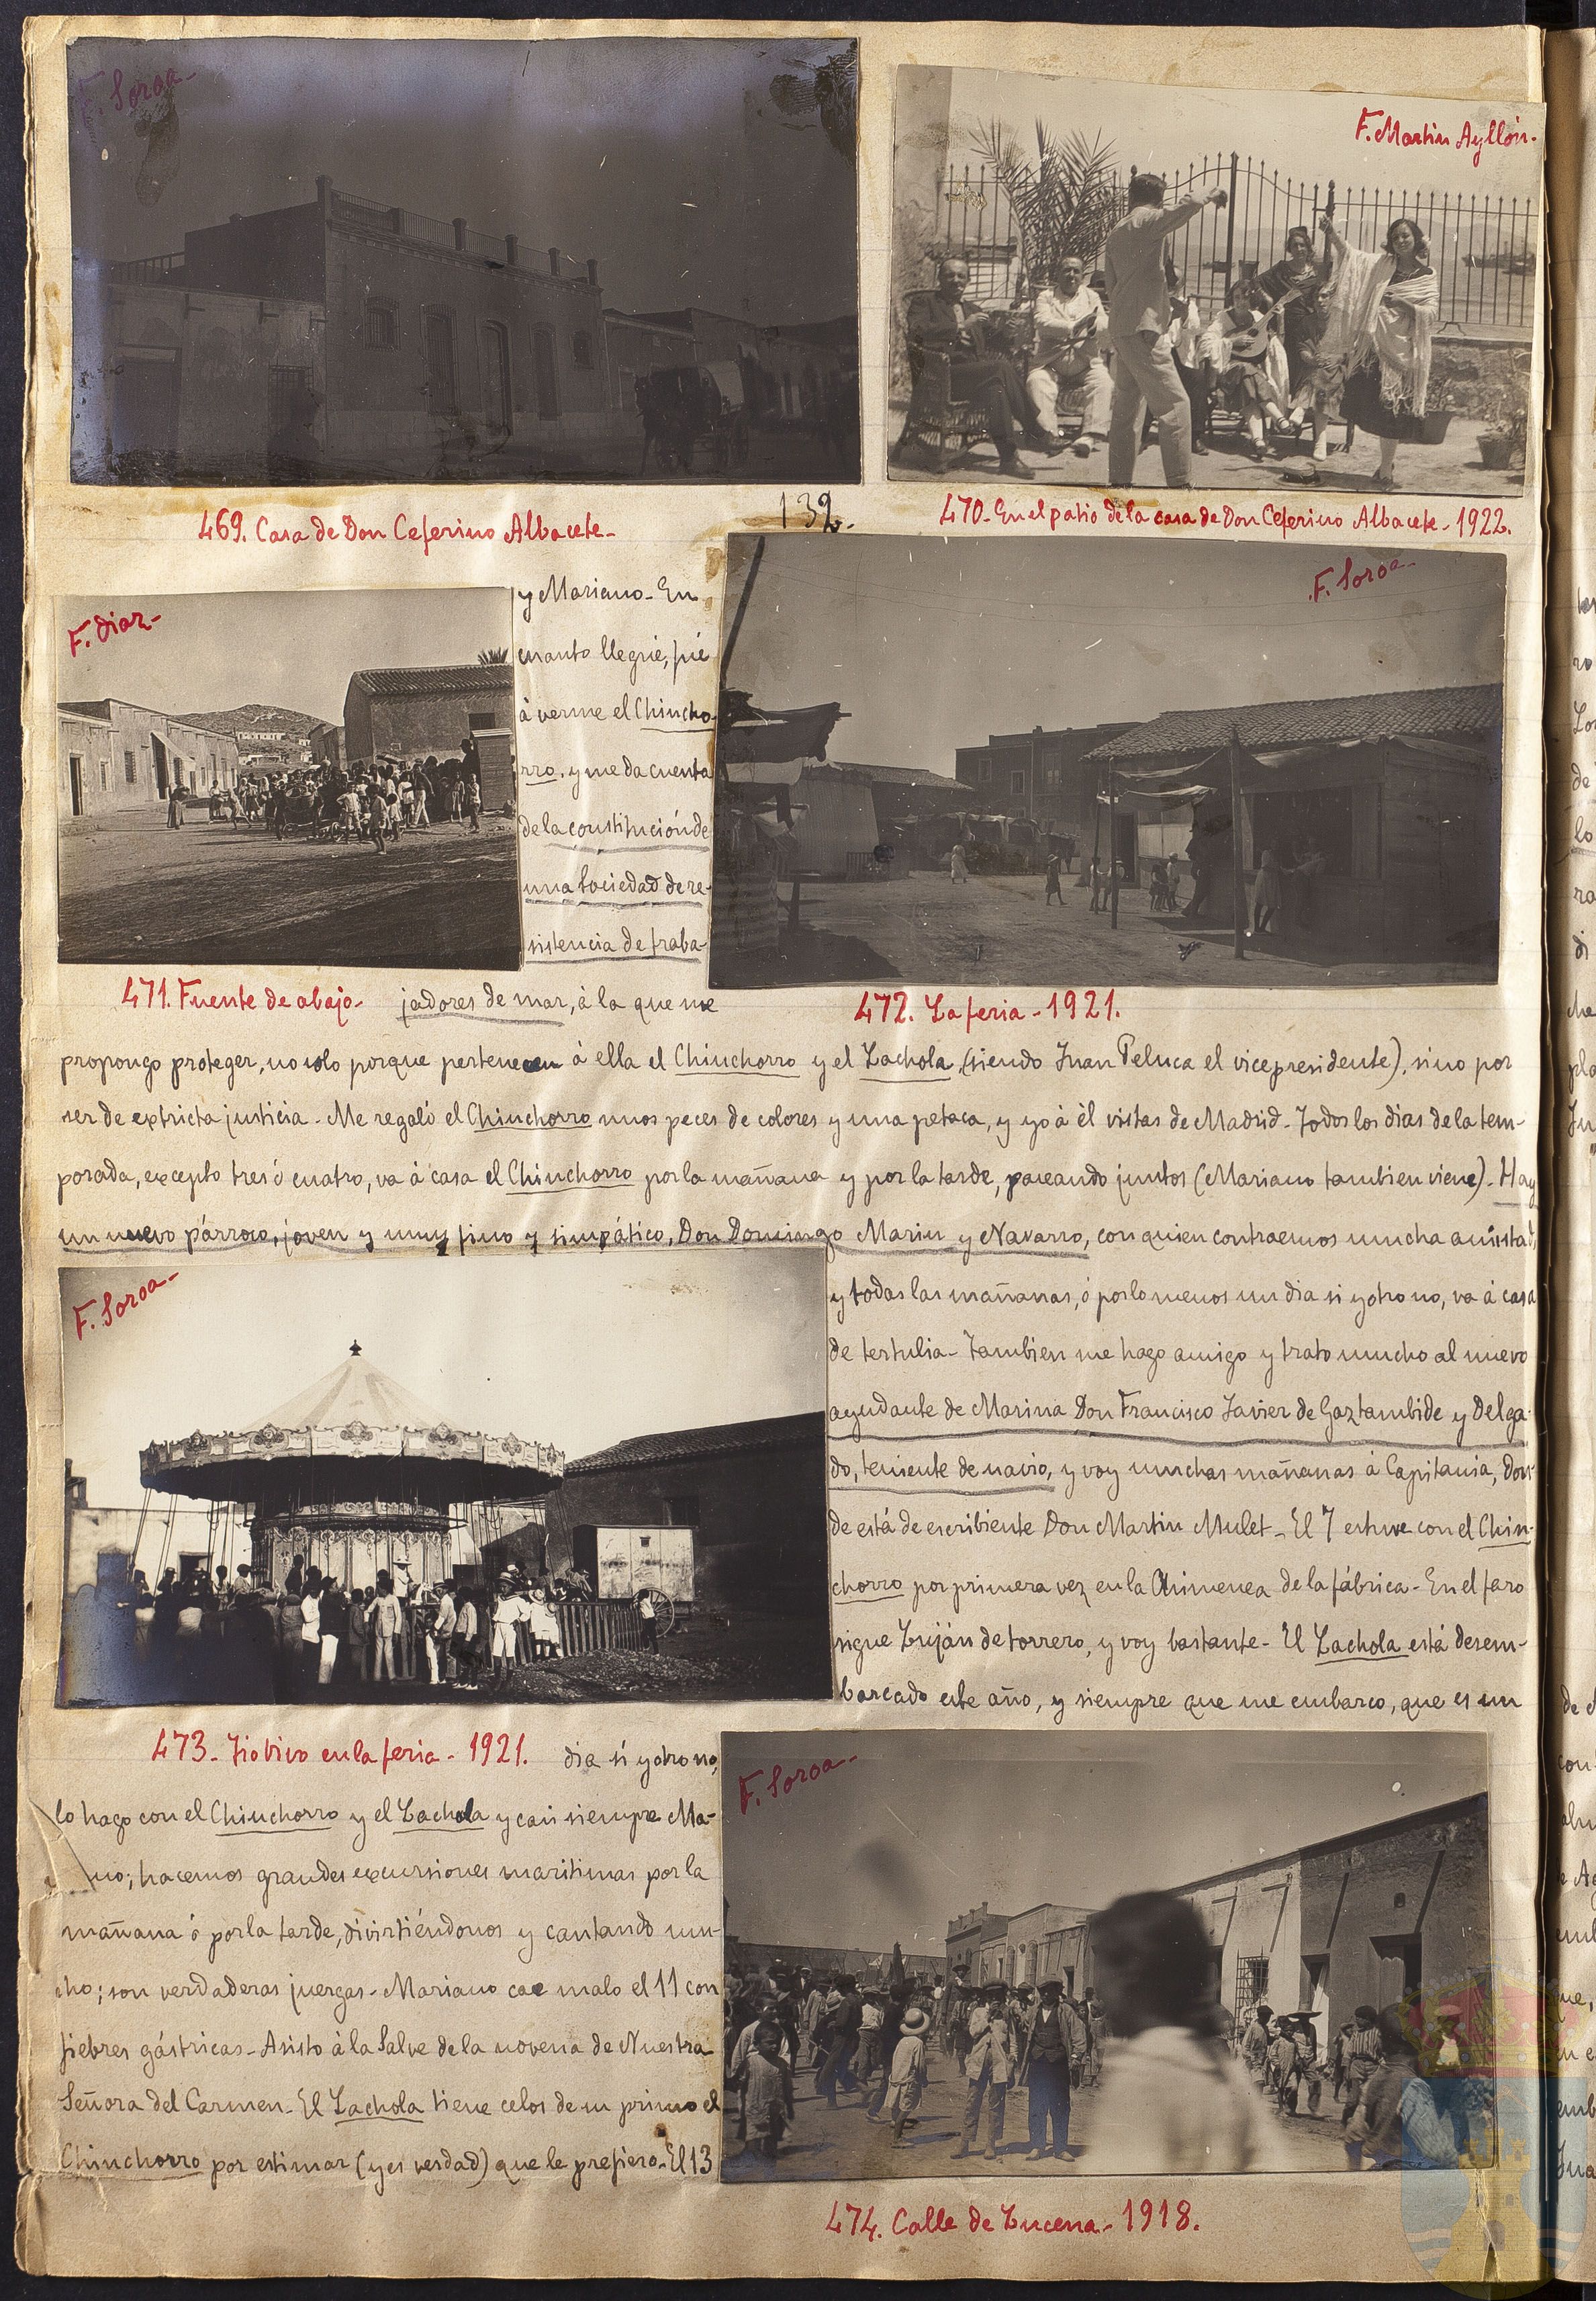 F. Soroa-
F. Martin Ayllón-
469. Casa de Don Ceferino Albacete-
132.
470. En el patio de la casa de Don Ceferino Albacete - 1922.
F. Diaz-
F. Soroa-
y Mariano - En
cuanto llegué, fué
à verme el Chincho-
rro, y me da cuenta
de la constitución de
una sociedad de re-
sistencia de traba-
471. Fuente de abajo-
jadores de mar, à la que me
472. La feria - 1921.
propongo proteger, no solo porque pertenecen à ella el Chinchorro y el Lachola, (siendo Juan Peluca el vicepresidente), sino por
ser de extricta justicia - Me regaló el Chinchorro unos peces de colores y una petaca, y yo à èl vistas de Madrid - Todos los dias de la tem-
porada, excepto tres ó cuatro, va à casa el Chinchorro por la mañana y por la tarde, paseando juntos (Mariano tambien viene) - Hay
un nuevo párroco, joven y muy fino y simpático, Don Domingo Marin y Navarro, con quien contraemos mucha amistad,
F. Soroa-
y todas las mañanas, ó por lo menos un dia si y otro no, va à casa
de tertulia - Tambien me hago amigo y trato mucho al nuevo
ayudante de Marina Don Francisco Javier de Gaztambide y Delga-
do, teniente de navio, y voy muchas mañanas à Capitania, don-
de está de escribiente Don Martin Mulet - El 7 estuve con el Chin-
chorro por primera vez en la Chimenea de la fábrica - En el faro
sigue Luján de torrero, y voy bastante - El Lachola está desem-
barcado este año, y siempre que me embarco, que es un
473. Tiovivo en la feria - 1921.
dia si y otro no,
lo hago con el Chinchorro y el Lachola y casi siempre Ma-
no; hacemos grandes excursiones maritimas por la
mañana ó por la tarde, divirtiéndonos y cantando mu-
cho; son verdaderas juergas - Mariano cae malo el 11 con
fiebres gástricas - Asisto à la Salve de la novena de Nuestra
Señora del Carmen - El Lachola tiene celos de su primo el
Chinchorro por estimar (y es verdad) que le prefiero - El 13
F. Soroa-
474. Calle de Lucena - 1918.